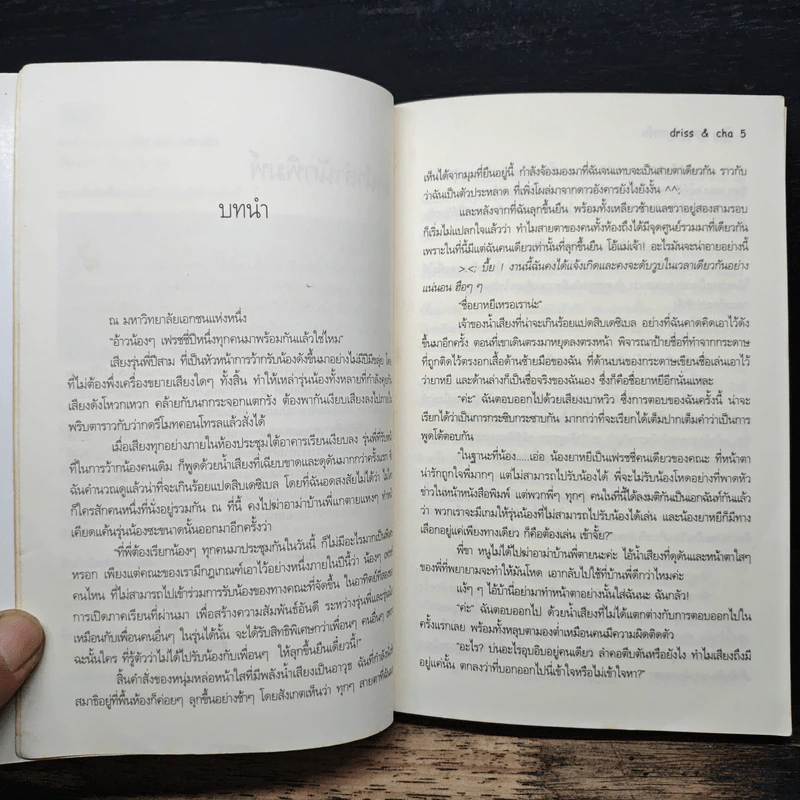 บทนำ
ณ มหาวิทยาลัยเอกชนแห่งหนึ่ง
"อ้าวน้องๆ เฟรชชี่ปีหนึ่งทุกคนมาพร้อมกันแล้วใช่ไหม"
เสียงรุ่นพี่ปีสาม ที่เป็นหัวหน้าการว้ากรับน้องดังขึ้นมาอย่างไม่มีปี่มีขลุ่ย โดย
ที่ไม่ต้องพึ่งเครื่องขยายเสียงใดๆ ทั้งสิ้น ทำให้เหล่ารุ่นน้องทั้งหลายที่กำลังคุยกัน
เสียงดังโหวกเหวก คล้ายกับนกกระจอกแตกรัง ต้องพากันเงียบเสียงลงไปภายใน
พริบตาราวกับว่ากดรีโมทคอนโทรลแล้วสั่งได้
เมื่อเสียงทุกอย่างภายในห้องประชุมใต้อาคารเรียนเงียบลง รุ่นพี่ที่รับหน้า
ที่ในการว้ากน้องคนเดิม ก็พูดด้วยน้ำเสียงที่เฉียบขาดและดุดันมากกว่าครั้งแรก ซึ่ง
ฉันคำนวณดูแล้วน่าที่จะเกินร้อยแปดสิบเดซิเบล โดยที่ฉันอดสงสัยไม่ได้ว่า ไม่
ก็ใครสักคนหนึ่งที่นั่งอยู่รวมกัน ณ ที่นี้ คงไปฆ่าอาม่าบ้านพี่แกตายแหงๆ ทำหน้า
เคียดแค้นรุ่นน้องซะขนาดนั้นออกมาอีกครั้งว่า
"ที่พี่ต้องเรียกน้องๆ ทุกคนมาประชุมกันในวันนี้ ก็ไม่มีอะไรมากเป็นพิเศษ
หรอก เพียงแต่คณะของเรามีกฎเกณฑ์เอาไว้อย่างหนึ่งภายในปีนี้ว่า น้องๆ
คนไหน ที่ไม่สามารถไปเข้าร่วมการรับน้องของทางคณะที่จัดขึ้น ในอาทิตย์ที่สอง
การเปิดภาคเรียนที่ผ่านมา เพื่อสร้างความสัมพันธ์อันดี ระหว่างรุ่นพี่และรุ่นน้อง
เหมือนกับเพื่อนคนอื่นๆ ในรุ่นได้นั้น จะได้รับสิทธิพิเศษกว่าเพื่อนๆ คนอื่นๆ
ฉะนั้นใคร ที่รู้ตัวว่าไม่ได้ไปรับน้องกับเพื่อนๆ ให้ลุกขึ้นยืนเดี๋ยวนี้!"
สิ้นคำสั่งของหนุ่มหล่อหน้าใสที่มีพลังน้ำเสียงเป็นอาวุธ ฉันที่กำลังนั่ง
สมาธิอยู่ที่พื้นห้องก็ค่อยๆ ลุกขึ้นอย่างช้าๆ โดยสังเกตเห็นว่า ทุกๆ สายตาที่ฉัน
driss & cha 5
เห็นได้จากมุมที่ยืนอยู่นี้ กำลังจ้องมองมาที่ฉันจนแทบจะเป็นสายตาเดียวกัน ราวกับ
ว่าฉันเป็นตัวประหลาด ที่เพิ่งโผล่มาจากดาวอังคารยังไงยังงั้น ^^;
และหลังจากที่ฉันลุกขึ้นยืน พร้อมทั้งเหลียวซ้ายแลขวาอยู่สองสามรอบ
ก็เริ่มไม่แปลกใจแล้วว่า ทำไมสายตาของคนทั้งห้องถึงได้มีจุดศูนย์รวมมาที่เดียวกัน
เพราะในที่นี้มีแต่ฉันคนเดียวเท่านั้นที่ลุกขึ้นยืน โอ้แม่เจ้า! อะไรมันจะน่าอายอย่างนี้
>.<; บี้ย ! งานนี้ฉันคงได้แจ้งเกิดและคงจะดับวูบในเวลาเดียวกันอย่าง
แน่นอน ฮือๆ ๆ
"ชื่อยาหยีเหรอเราน่ะ"
เจ้าของน้ำเสียงที่น่าจะเกินร้อยแปดสิบเดซิเบล อย่างที่ฉันคาดคิดเอาไว้ดัง
ขึ้นมาอีกครั้ง ตอนที่เขาเดินตรงมาหยุดลงตรงหน้า พิจารณาป้ายชื่อที่ทำจากกระดาษ
ที่ถูกติดไว้ตรงอกเสื้อด้านซ้ายมือของฉัน ที่ด้านบนของกระดาษเขียนชื่อเล่นเอาไว้
ว่ายาหยี และด้านล่างก็เป็นชื่อจริงของฉันเอง ซึ่งก็คือชื่อยาหยีอีกนั่นแหละ
"ค่ะ" ฉันตอบออกไปด้วยเสียงเบาหวิว ซึ่งการตอบของฉันครั้งนี้ น่าจะ
เรียกได้ว่าเป็นการกระซิบกระซาบกัน มากกว่าที่จะเรียกได้เต็มปากเต็มคำว่าเป็นการ
พูดโต้ตอบกัน
"ในฐานะที่น้อง.....เอ่อ น้องยาหยีเป็นเฟรชชี่คนเดียวของคณะ ที่หน้าตา
น่ารักถูกใจพี่มากๆ แต่ไม่สามารถไปรับน้องได้ พี่จะไม่รับน้องโหดอย่างที่พาดหัว
ข่าวในหน้าหนังสือพิมพ์ แต่พวกพี่ๆ ทุกๆ คนในที่นี้ได้ลงมติกันเป็นเอกฉันท์กันแล้ว
ว่า พวกเราจะมีเกมให้รุ่นน้องที่ไม่สามารถไปรับน้องได้เล่น และน้องยาหยีก็มีทาง
เลือกอยู่แค่เพียงทางเดียว ก็คือต้องเล่น เข้าจั้ย?"
พี่ขา หนูไม่ได้ไปฆ่าอาม่าบ้านพี่ตายนะค่ะ ไอ้น้ำเสียงที่ดุดันและหน้าตาใสๆ
ของพี่ที่พยายามจะทำให้มันโหด เอากลับไปใช้ที่บ้านพี่ดีกว่าไหมค่ะ
แง้ๆ ๆ ไอ้บ้านี่อย่ามาทำหน้าตาอย่างนั้นใส่ฉันนะ ฉันกลัว!
"ค่ะ" ฉันตอบออกไป ด้วยน้ำเสียงที่ไม่ได้แตกต่างกับการตอบออกไปใน
ครั้งแรกเลย พร้อมทั้งหลุบตามองต่ำเหมือนคนมีความผิดติดตัว
"อะไร? บ่นอะไรอุบอิบอยู่คนเดียว ลำคอตีบตันหรือยังไง ทำไมเสียงถึงมี
อยู่แค่นั้น ตกลงว่าที่บอกออกไปนี่เข้าใจหรือไม่เข้าใจหา?"